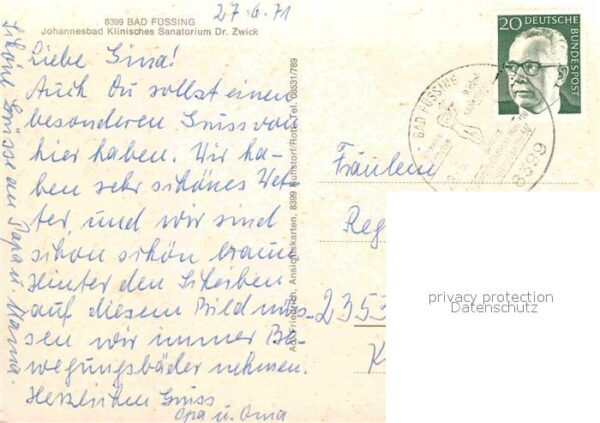 27.6.71
8399 BAD FÜSSING
Johannesbad Klinisches Sanatorium Dr. Zwick
Liebe Gina!
Auch Du sollst einen
besonderen Gruss von
hier haben. Wir ha-
ben sehr schönes Wet-
ter, und wir sind
schon schön braun
Hinter den Scheiben
auf diesem Bild müs-
sen wir immer Be-
wegungsbäder nehmen.
Herzlichen Gruss
Opa u. Oma
Schöne Grüsse an Papa u. Mama.
Ansichtskarten, 8399 Ruhstorf/Rott Tel. 08531/789
20 DEUTSCHE
BUNDESPOST
BAD FÜSSING
8399
Fräulein
Reg
2353
K
privacy protection
Datenschutz